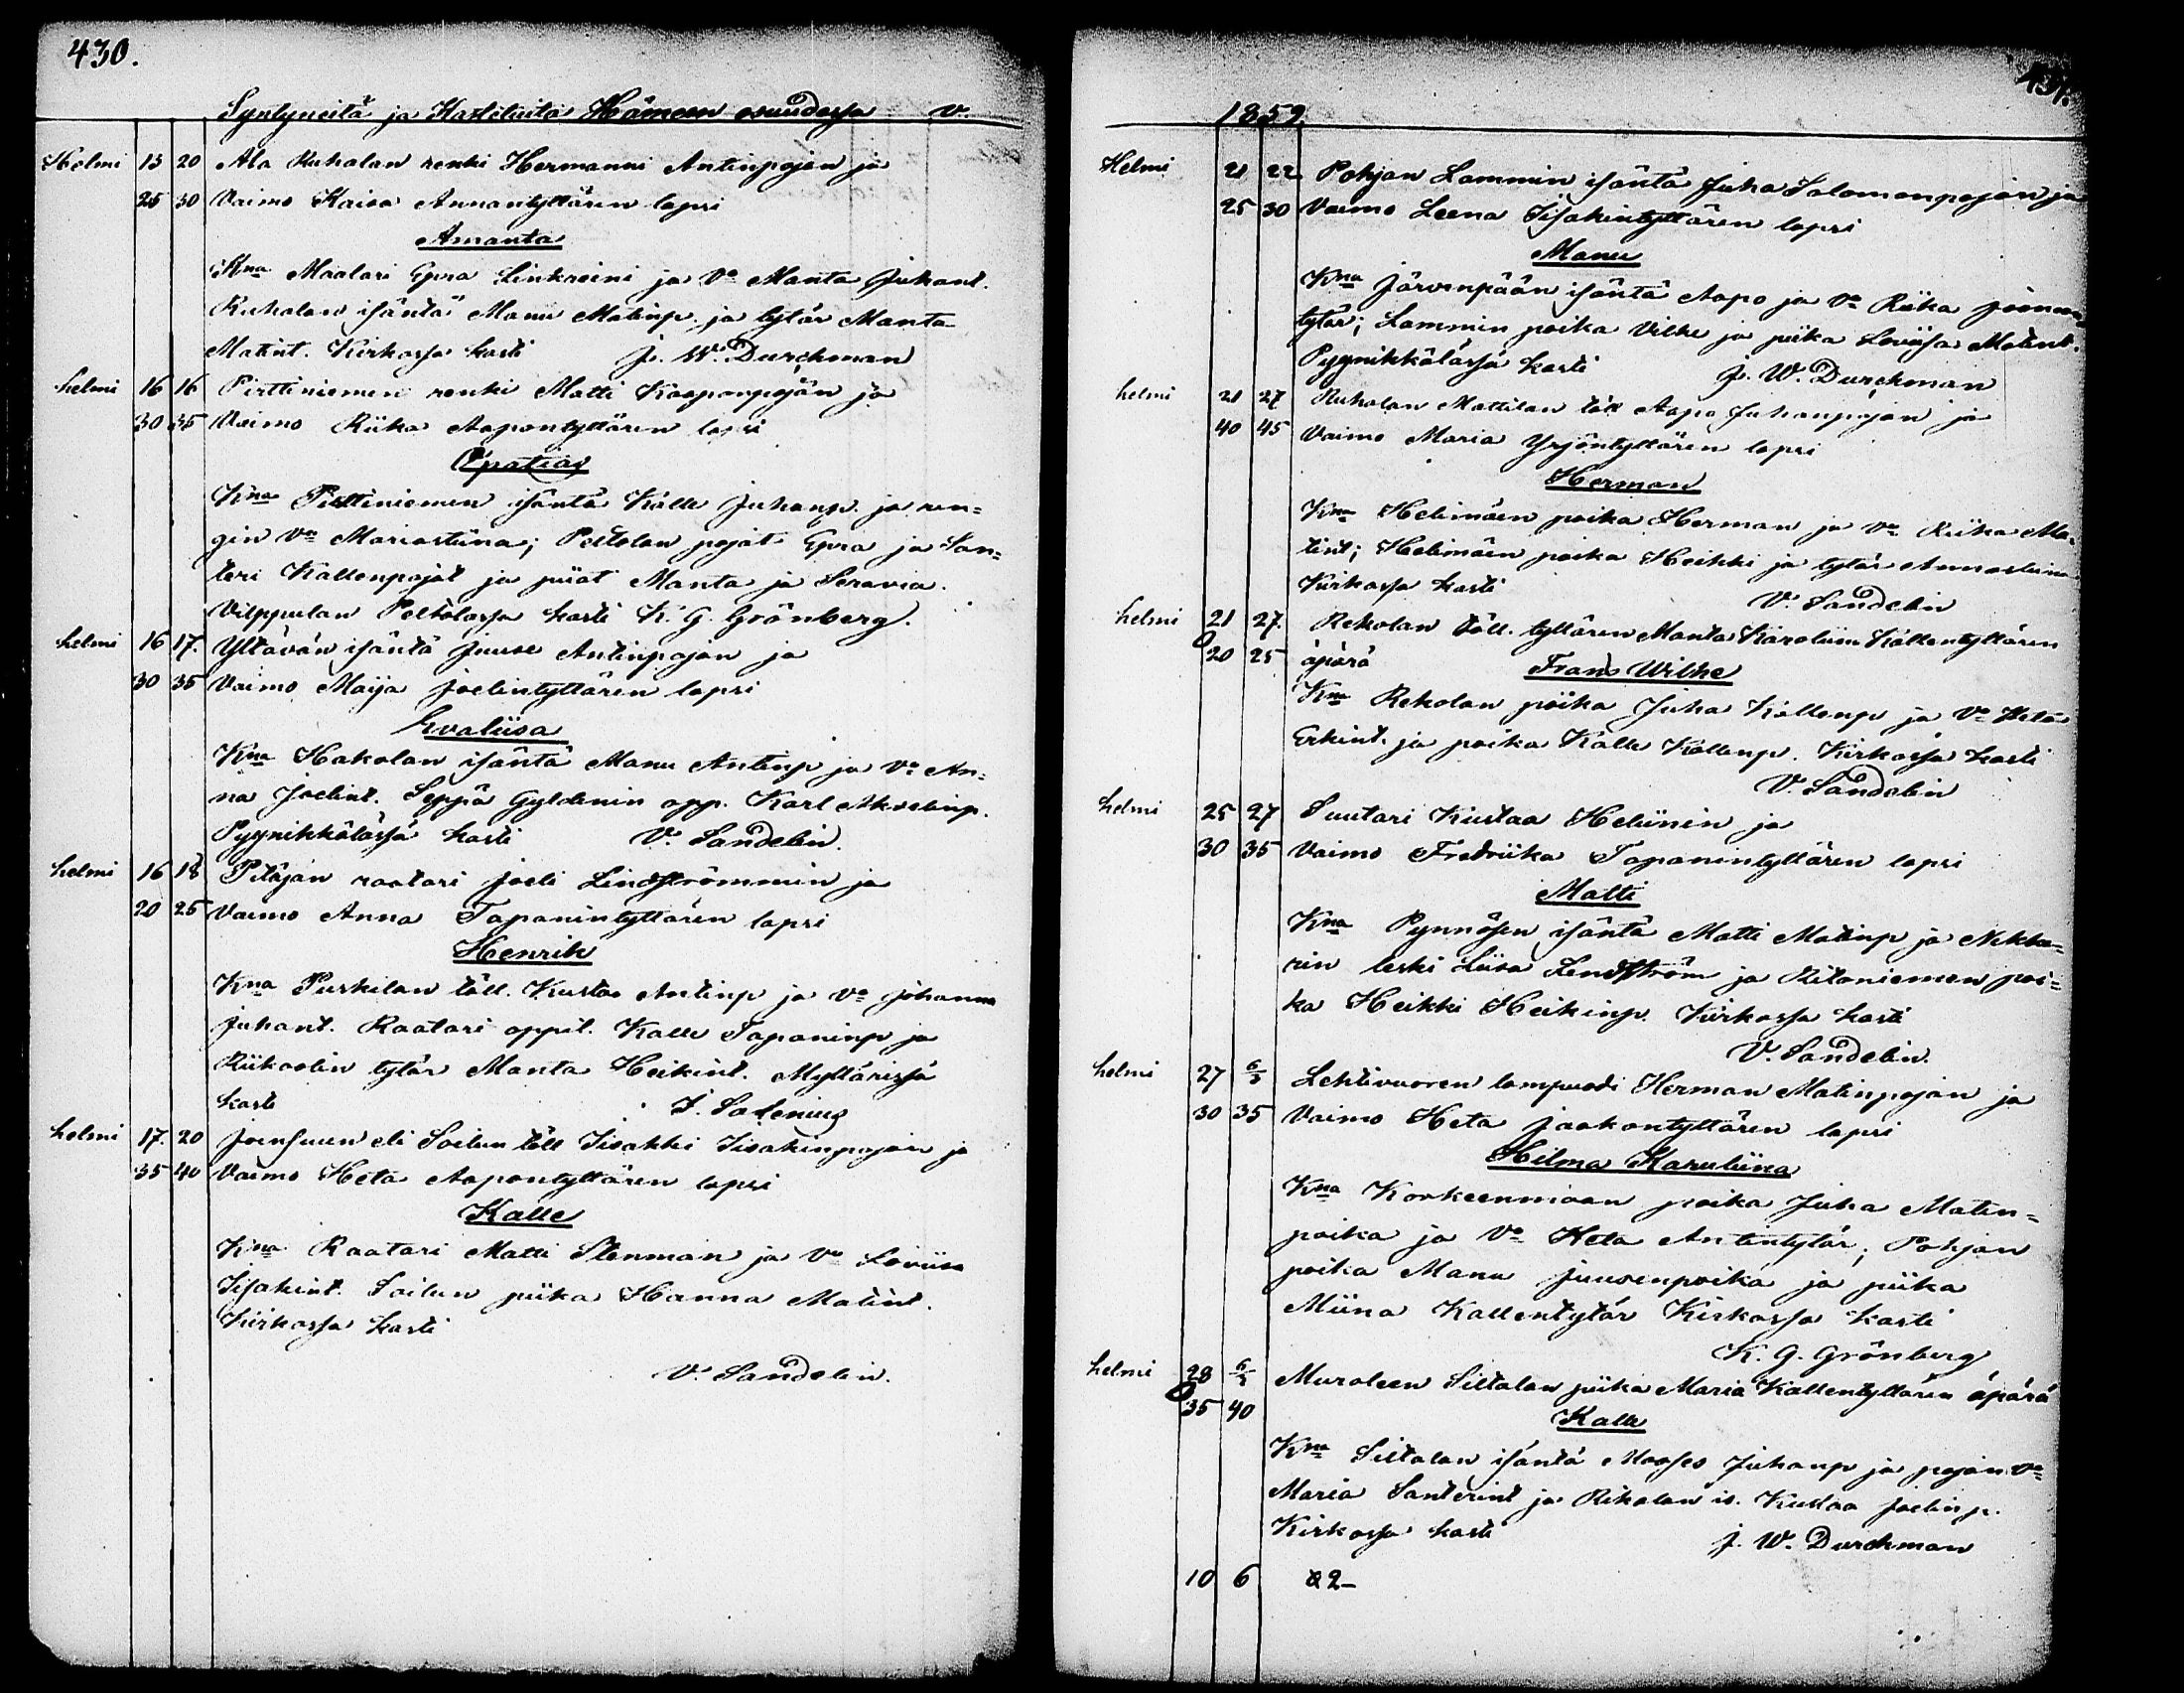 430.
Syntyneitä ja Kastetuita Hämeen osuudessa v.
Helmi 13 20 Ala Ruhalan renki Hermanni Antinpojan ja
25 30 Vaimo Kaisa Annantyttären lapsi
Amanta
Kna Maalari Epra Linkreini ja Vo Manta Juhant.
Ruhalan isäntä Manu Matinp. ja tytär Manta
Matint. Kirkossa kasti J. W. Durchman
helmi 16 16 Pirttiniemen renki Matti Kaaponpojan ja
30 35 Vaimo Riika Aapontyttären lapsi
Opatias
Kna Pirttiniemen isäntä Kalle Juhanp. ja ren=
gin Vo Mariastiina; Peltolan pojat Epra ja San=
teri Kallenpojat ja piiat Manta ja Seravia.
Vilppulan Peltolassa kasti K. G. Grönberg.
helmi 16 17. Yltävän isäntä Juuse Antinpojan ja
30 35 Vaimo Maija Joelintyttären lapsi
Evaliisa
Kna Hakolan isäntä Manu Antinp ja Vo An=
na Joelint. Seppä Gyldenin opp. Karl
Pyynikkälässä kasti V. Sandelin.
helmi 16 18 Pitäjän raatari Joeli Lindströmmin ja
20 25 Vaimo Anna Tapanintyttären lapsi
Henrik
Kna Purkilan töll. Kustaa Antinp ja Vo Johanna
Juhant. Raatari oppil. Kalle Tapaninp ja
tytär Manta Heikint. Myllärissä
kasti J. Salenius
helmi 17. 20 Joensuun eli Soilun töll Iisakki Iisakinpojan ja
35 40 Vaimo Heta Aapontyttären lapsi
Kalle
Kna Raatari Matti Stenman ja Vo Loviisa
Iisakint. Soilun piika Hanna Matint.
Kirkossa kasti
V. Sandelin.
431.
1859.
Helmi 21 22 Pohjan Lammin isäntä Juha Salomonpojan ja
25 30 Vaimo Leena Iisakintyttären lapsi
Manu
Kna Järvenpään isäntä Aapo ja Vo Riika
tytär; Lammin poika Vilke ja piika Loviisa Matint.
Pyynikkälässä kasti J. W. Durchman
helmi 21 27 Ruhalan Mattilan töll Aapo Juhanpojan ja
40 45 Vaimo Maria Yrjöntyttären lapsi
Herman
Kna Helimäen poika Herman ja Vo Riika Ma=
tint; Helimäen poika Heikki ja tytär Annastiina
Kirkossa kasti V. Sandelin
helmi 21 27. Rekolan töll. tyttären Manta Karoliin Kallentyttären
20 25 äpärä Frans Wilke
Kna Rekolan poika Juha Kallenp ja Vo Heta
Erkint. ja poika Kalle Kallenp. Kirkossa kasti
V. Sandelin
helmi 25 27 Suutari Kustaa Heliinin ja
30 35 Vaimo Fredriika Tapanintyttären lapsi
Matti
Kna Pynnösen isäntä Matti Matinp ja Nikka=
rin leski Liisa Lendström ja Ritoniemen poi=
ka Heikki Heikinp. Kirkossa kasti
V. Sandelin.
helmi 27 6/3 Lehtivuoren lampuodi Herman Matinpojan ja
30 35 Vaimo Heta Jaakontyttären lapsi
Hilma Karuliina
Kna Korkeenmaan poika Juha Matin=
poika ja Vo Heta Antintytär; Pohjan
poika Manu Juusenpoika ja piika
Miina Kallentytär Kirkossa kasti
K. G. Grönberg
helmi 28 6/3 Muroleen Siltalan piika Maria Kallentyttären äpärä
35 40
Kalle
Kna Siltalan isäntä Mooses Juhanp ja pojan Vo
Maria Santerint ja Rikalan is. Kustaa Joelinp.
Kirkossa kasti J. W. Durchman
10 6 2-